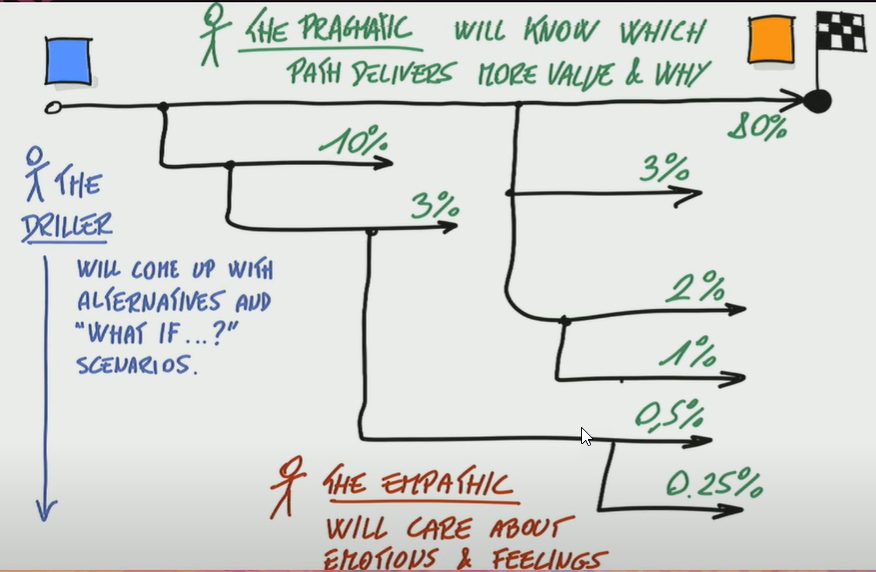 THE PRAGMATIC WILL KNOW WHICH
PATH DELIVERS MORE VALUE & WHY
80%
10%
3%
3%
2%
1%
0,5%
0.25%
THE
DRILLER
WILL COME UP WITH
ALTERNATIVES AND
"WHAT IF...?"
SCENARIOS.
THE EMPATHIC
WILL CARE ABOUT
EMOTIONS & FEELINGS